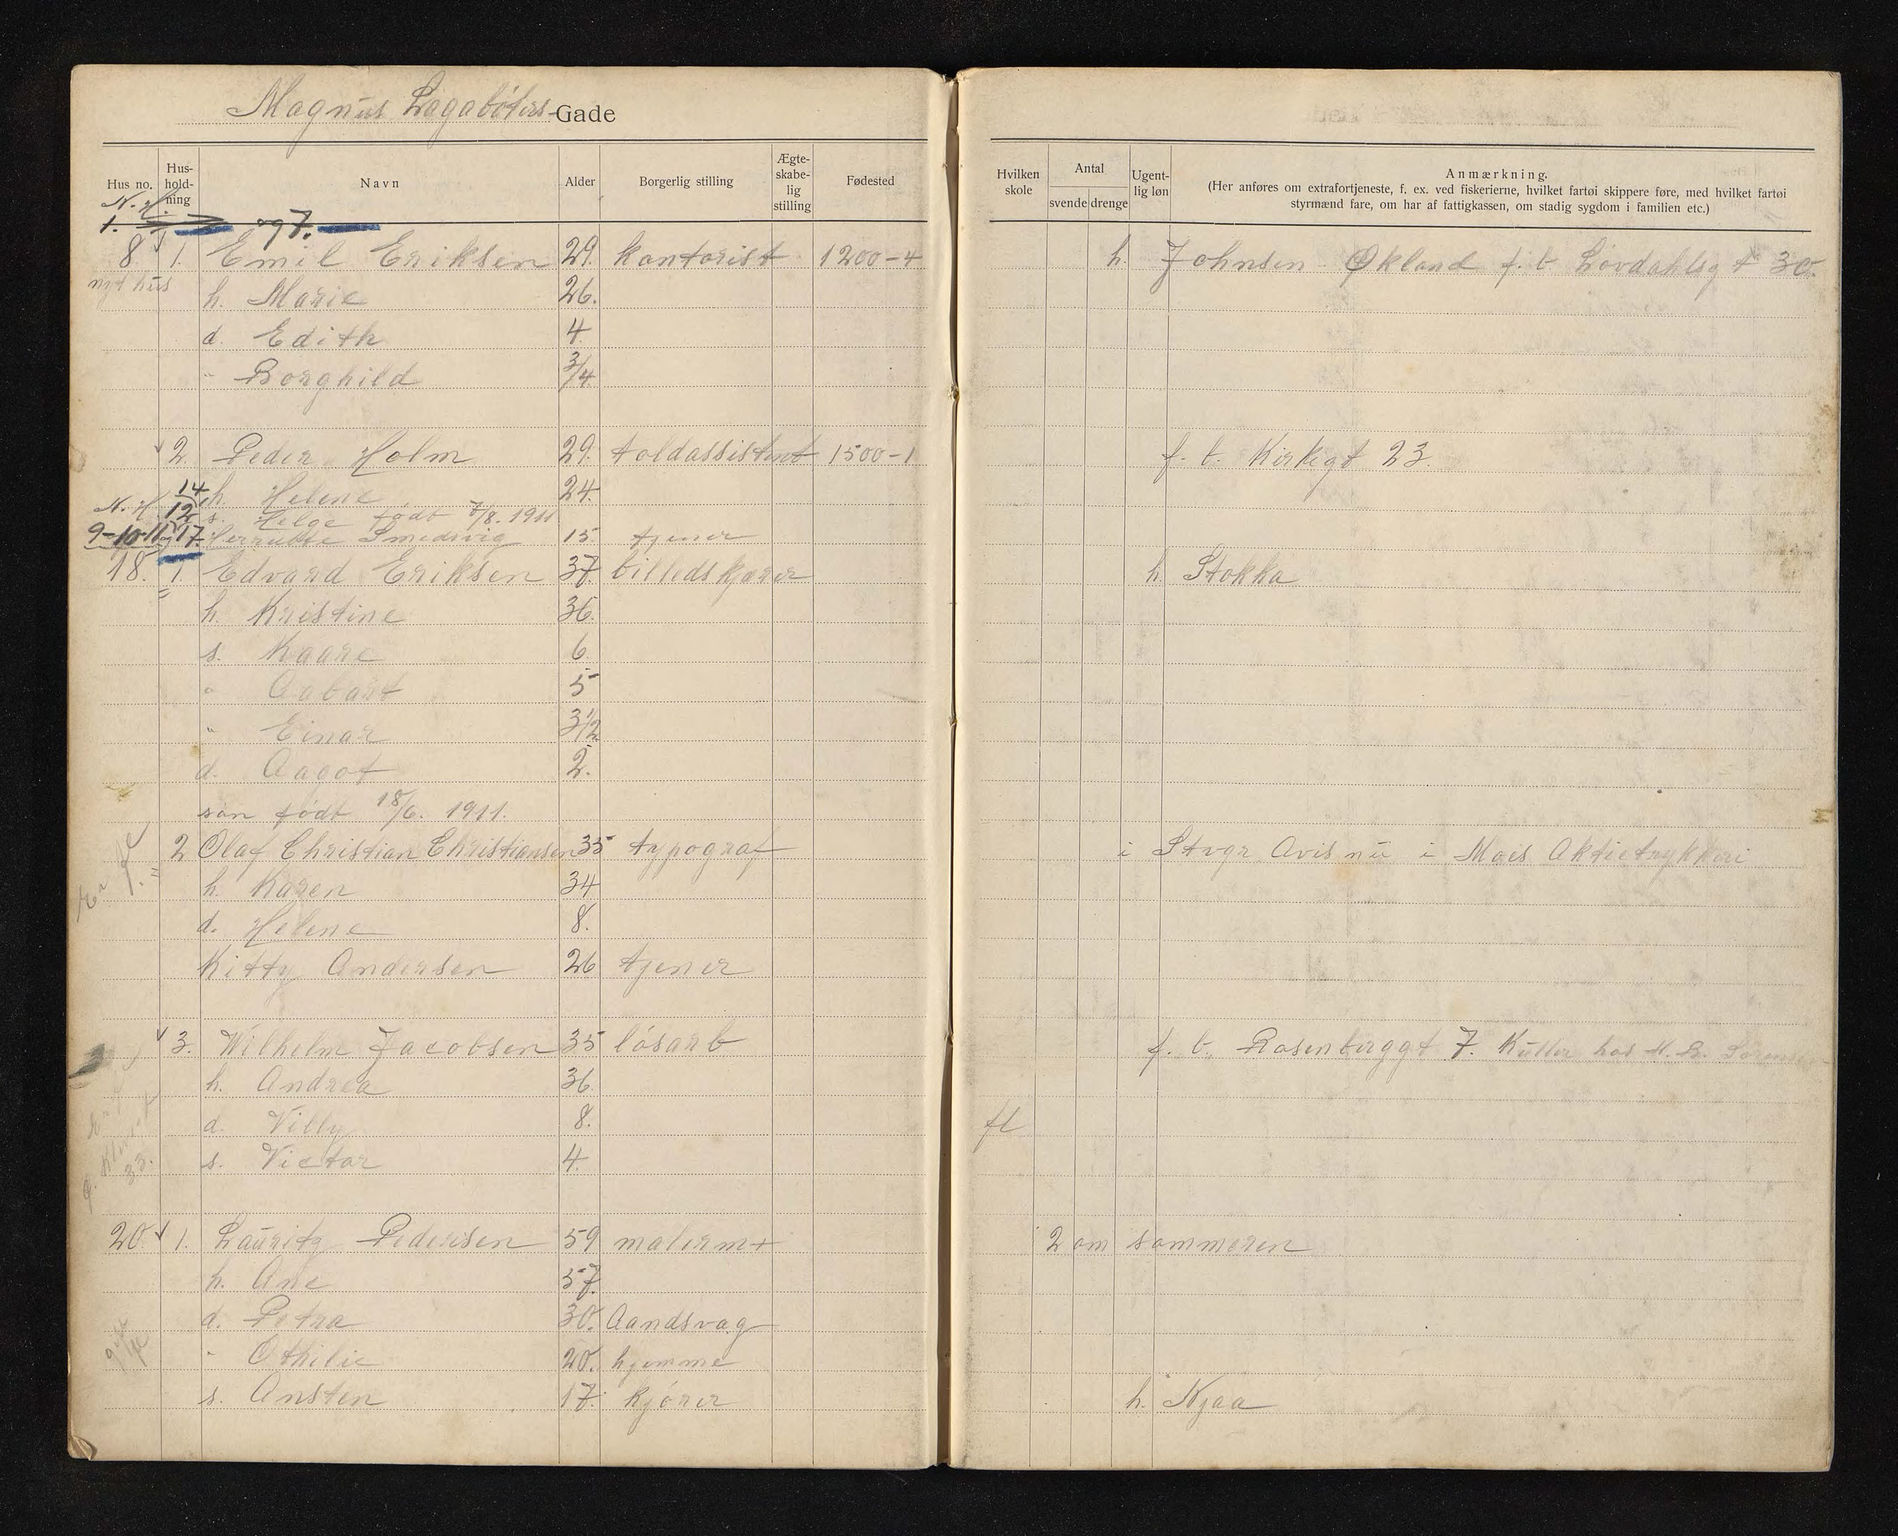 Magnus Lagabøters-Gade
Hus no. Hus-hold-ning Navn Alder Borgerlig stilling Ægte-skabe-lig stilling Fødested Hvilken skole Antal svende drenge Ugent-lig løn Anmærkning.
(Her anføres om extrafortjeneste, f. ex. ved fiskerierne, hvilket fartøi skippere føre, med hvilket fartøi
styrmænd fare, om har af fattigkassen, om stadig sygdom i familien etc.)
N. H.
1. og 7.
8 1. Emil Eriksen 29. kontorist 1200-4 h. Johnsen Økland f. b Løvdahlsgt 30.
nyt hus h. Marie 26.
d. Edith 4.
" Borghild 3/4
2. Peder Holm 29. toldassistent 1500-1 f. b. Kirkegt 23.
14 h. Helene 24.
N. H. 12 s. Helge født 7/8. 1911
9-10-11 17. Smedsvig 15. tjener
18. 1. Edvard Eriksen 37. billedskjærer h. Stokka
h. Kristine 36.
s. Kaare 6.
" Aabart 5
" Einar 3 1/2
d. Aagot 2.
søn født 18/6. 1911.
2 Olaf Christian Christiansen 35 typograf i Stvgr Avis nu i Moes Aktietrykkeri
h. Karen 34
d. Helene 8.
Kitty Andersen 26 tjener
3. Wilhelm Jacobsen 35 løsarb f. b. Rosenberggt 7. Kutter hos
h. Andrea 36.
d. Villy 8. fl
s. Victor 4.
33.
20. 1. Lauritz Pedersen 59 malerm+ 2 om sommeren
h. Ane 57.
d. Petra 30. Aandsvag
" Othilie 20. hjemme
s. Ansten 17. kjører h. Kjaa